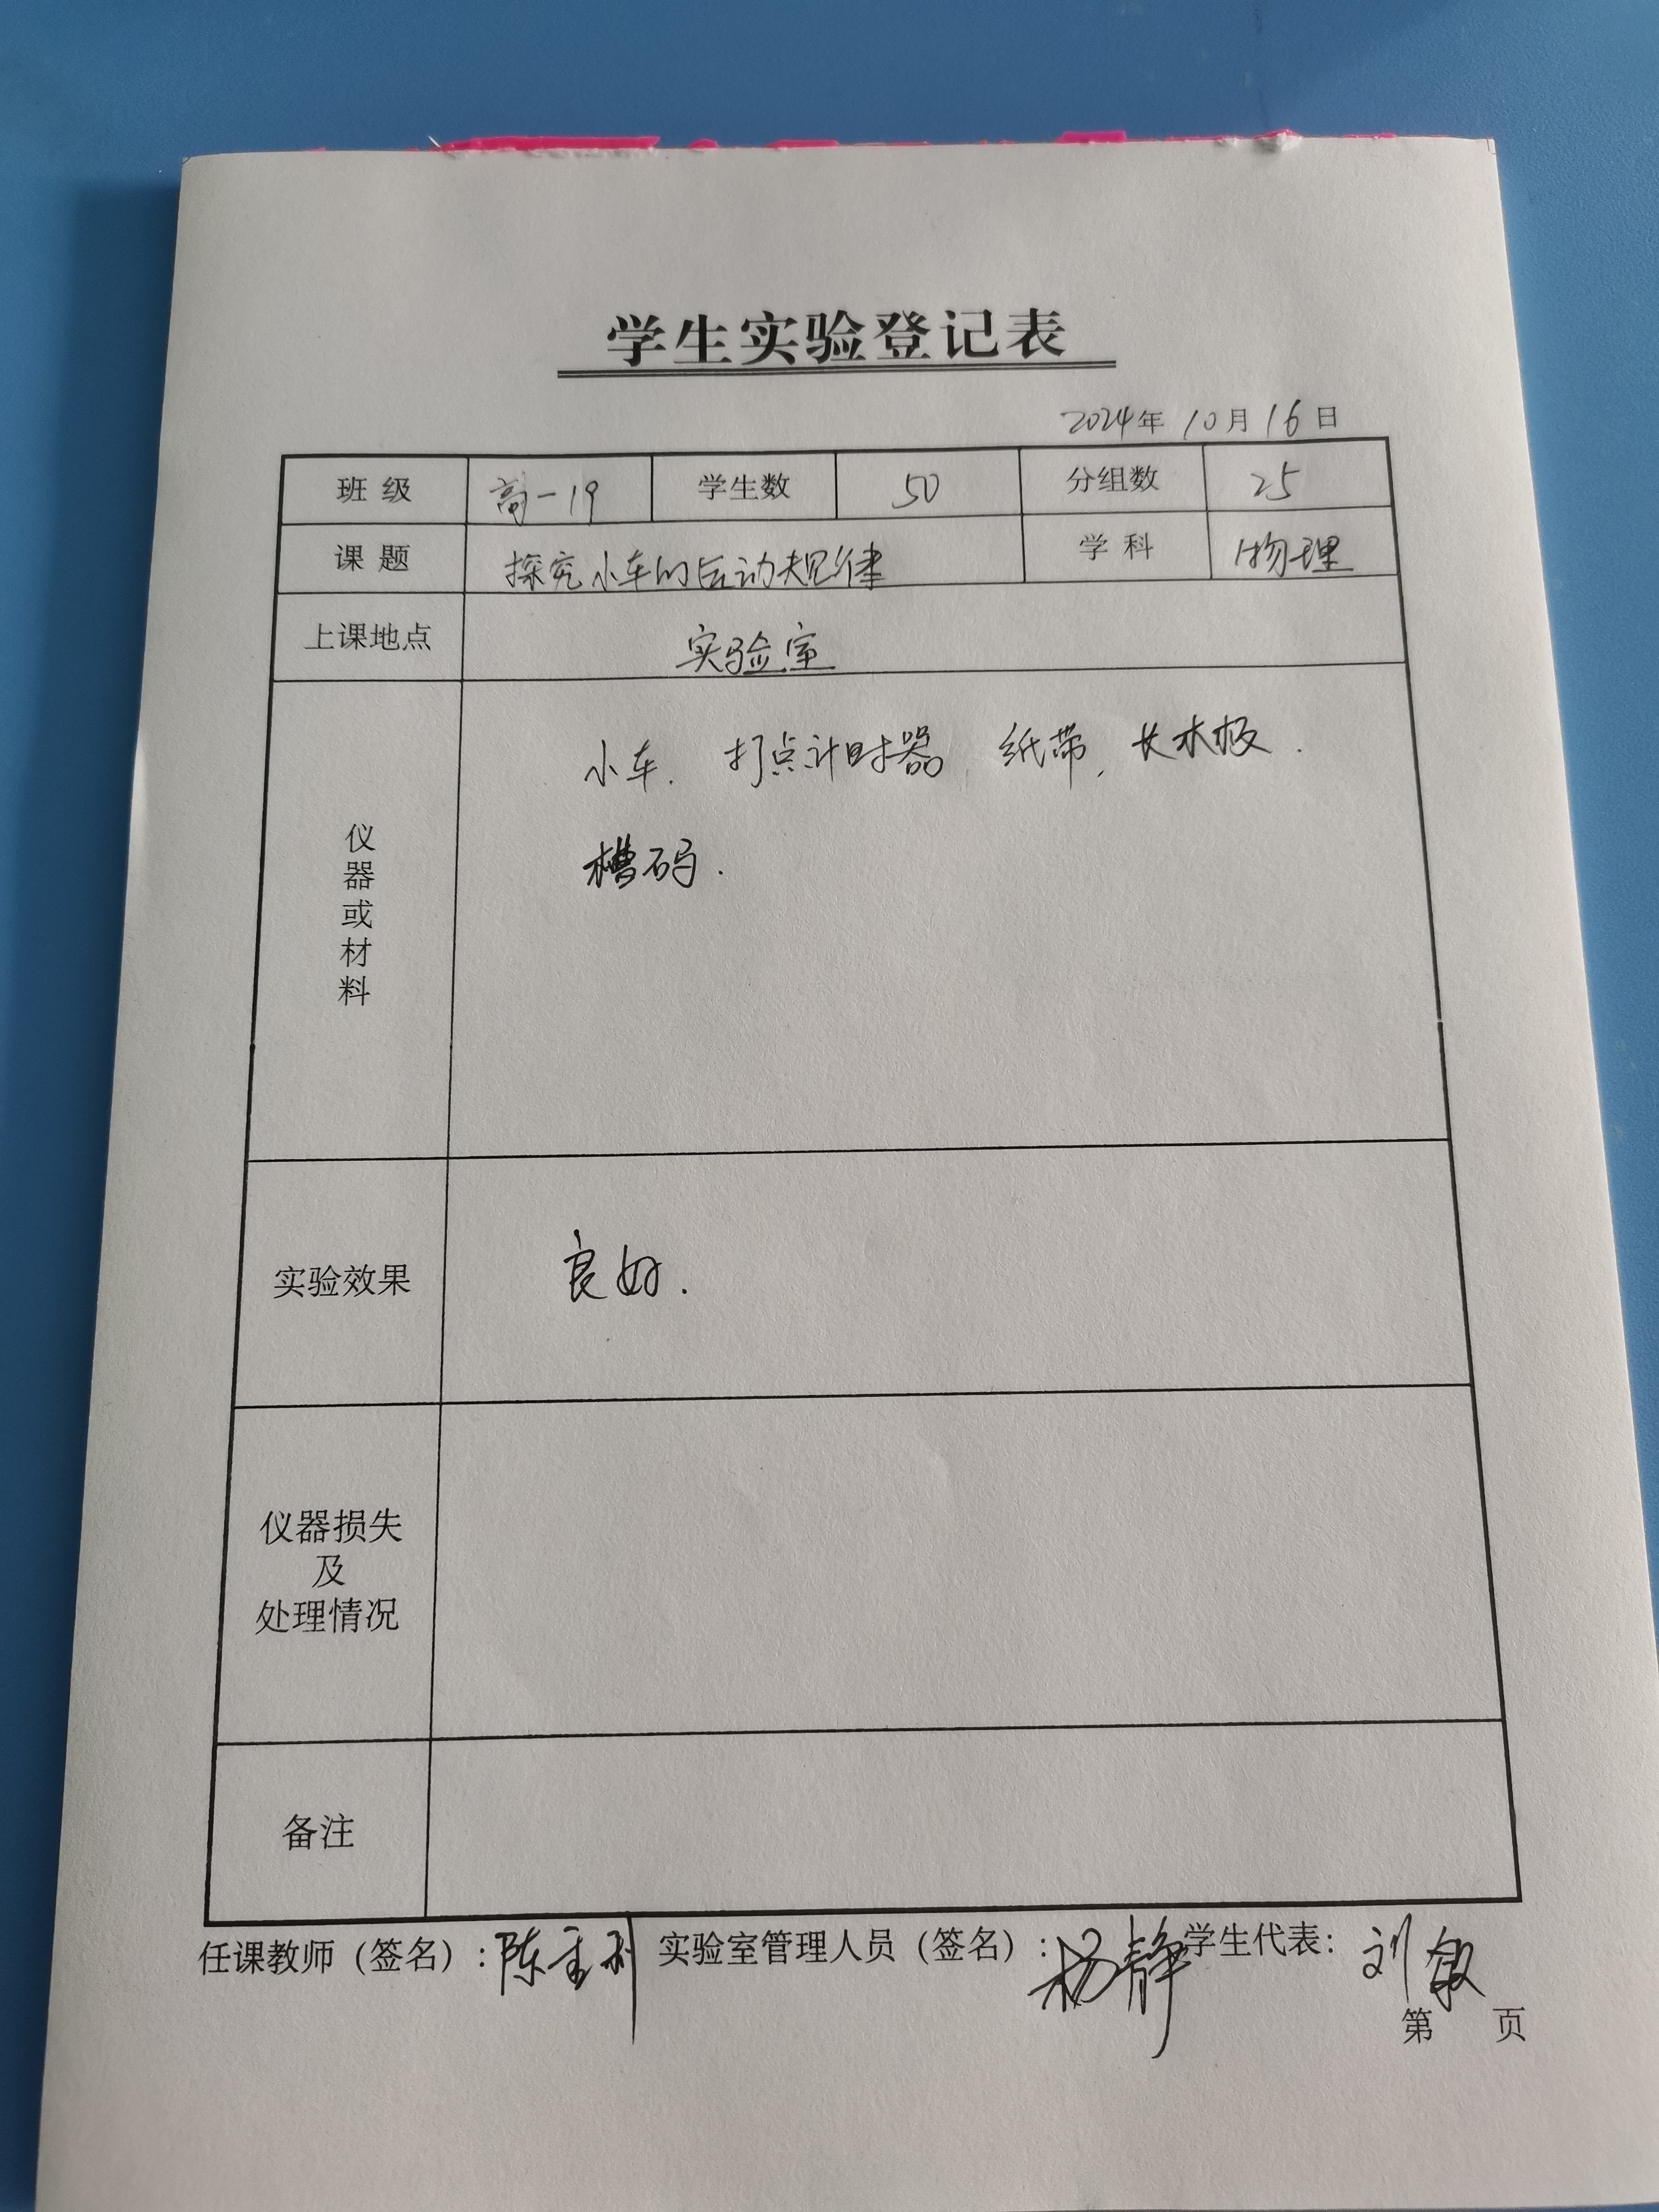 学生实验登记表
2024年 10月 16日
班级 高一19 学生数 50 分组数 25
课题 探究小车的运动规律 学科 物理
上课地点 实验室
仪器或材料
小车. 打点计时器, 纸带, 长木板.
槽码.
实验效果 良好.
仪器损失
及
处理情况
备注
任课教师（签名）: 陈 实验室管理人员（签名）: 杨静 学生代表: 刘
第 页